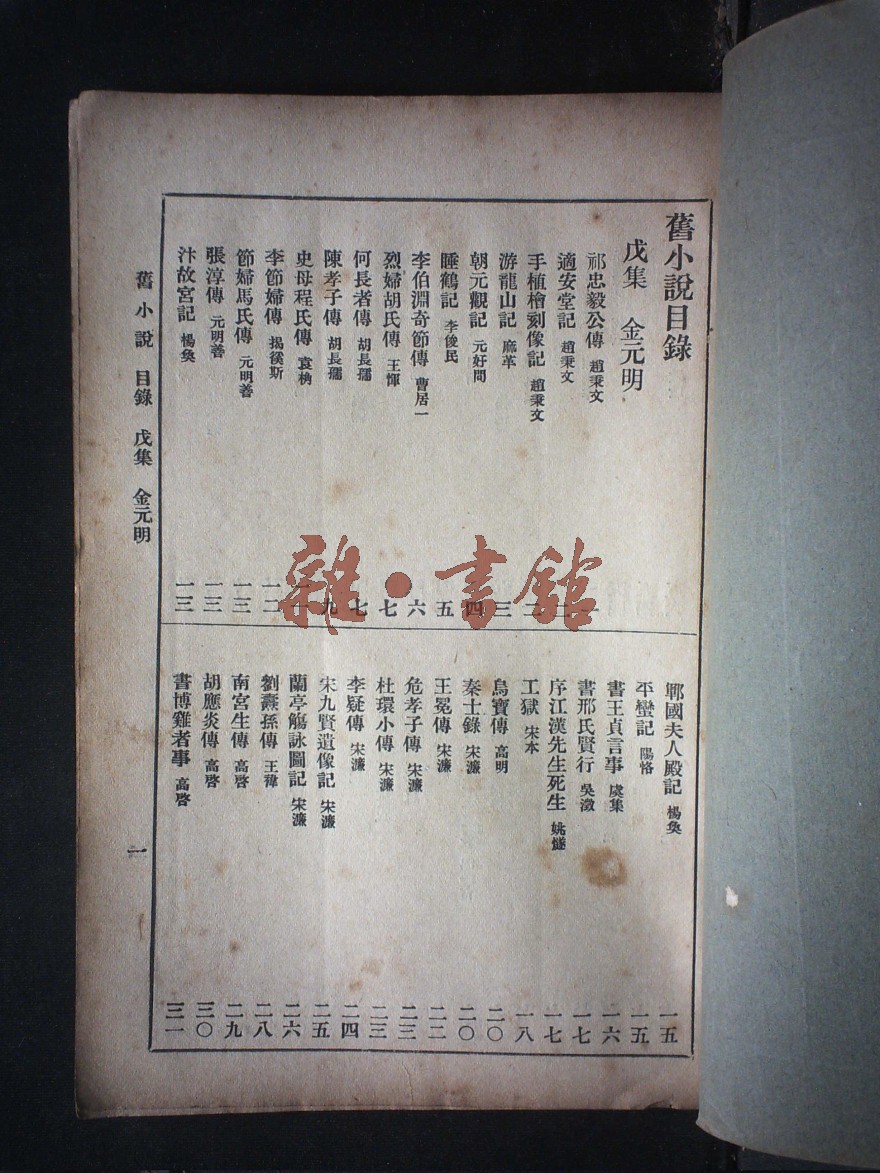 舊小說目錄
戊集 金元明
祁忠毅公傳 趙秉文 一
適安堂記 趙秉文 二
手植檜刻像記 趙秉文 二
游龍山記 麻革 三
朝元觀記 元好問 四
睡鶴記 李俊民 五
李伯淵奇節傳 曹居一 六
烈婦胡氏傳 王惲 七
何長者傳 胡長孺 七
陳孝子傳 胡長孺 九
史母程氏傳 袁桷
李節婦傳 揭傒斯 一二
節婦馬氏傳 元明善 一三
張淳傳 元明善 一三
汴故宮記 楊奐 一三
鄆國夫人殿記 楊奐 一五
平蠻記 陽恪 一五
書王貞言事 虞集 一六
書邢氏賢行 吳澂 一七
序江漢先生死生 姚燧 一七
工獄 宋本 一八
烏寶傳 高明 二〇
秦士錄 宋濂 二〇
王冕傳 宋濂 二二
危孝子傳 宋濂 二三
杜環小傳 宋濂 二三
李疑傳 宋濂 二四
宋九賢遺像記 宋濂 二五
蘭亭觴詠圖記 宋濂 二六
劉燾孫傳 王禕 二八
南宮生傳 高啓 二九
胡應炎傳 高啓 三〇
書博雞者事 高啓 三一
舊小說 目錄 戊集 金元明 一
雜·書館